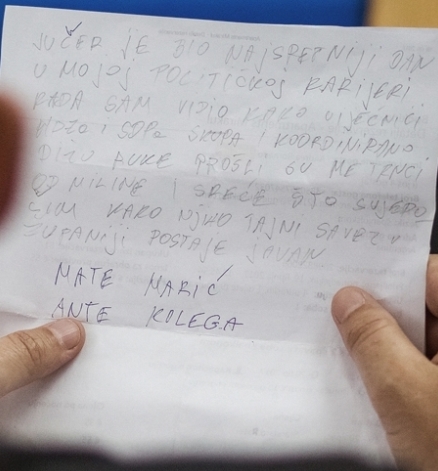 JUČER JE BIO NAJSRETNIJI DAN
U MOJOJ POLITIČKOJ KARIJERI
KADA SAM VIDIO KAKO VIJEĆNICI
HDZa i SDPa SKUPA I KOORDINIRANO
DIŽU RUKE PROŠLI SU ME TRNCI
OD MILINE I SREĆE ŠTO SVJEDO
ČIM KAKO NJIHO TAJNI SAVEZ U
ŽUPANIJI POSTAJE JAVAN
MATE MARIĆ
ANTE KOLEGA